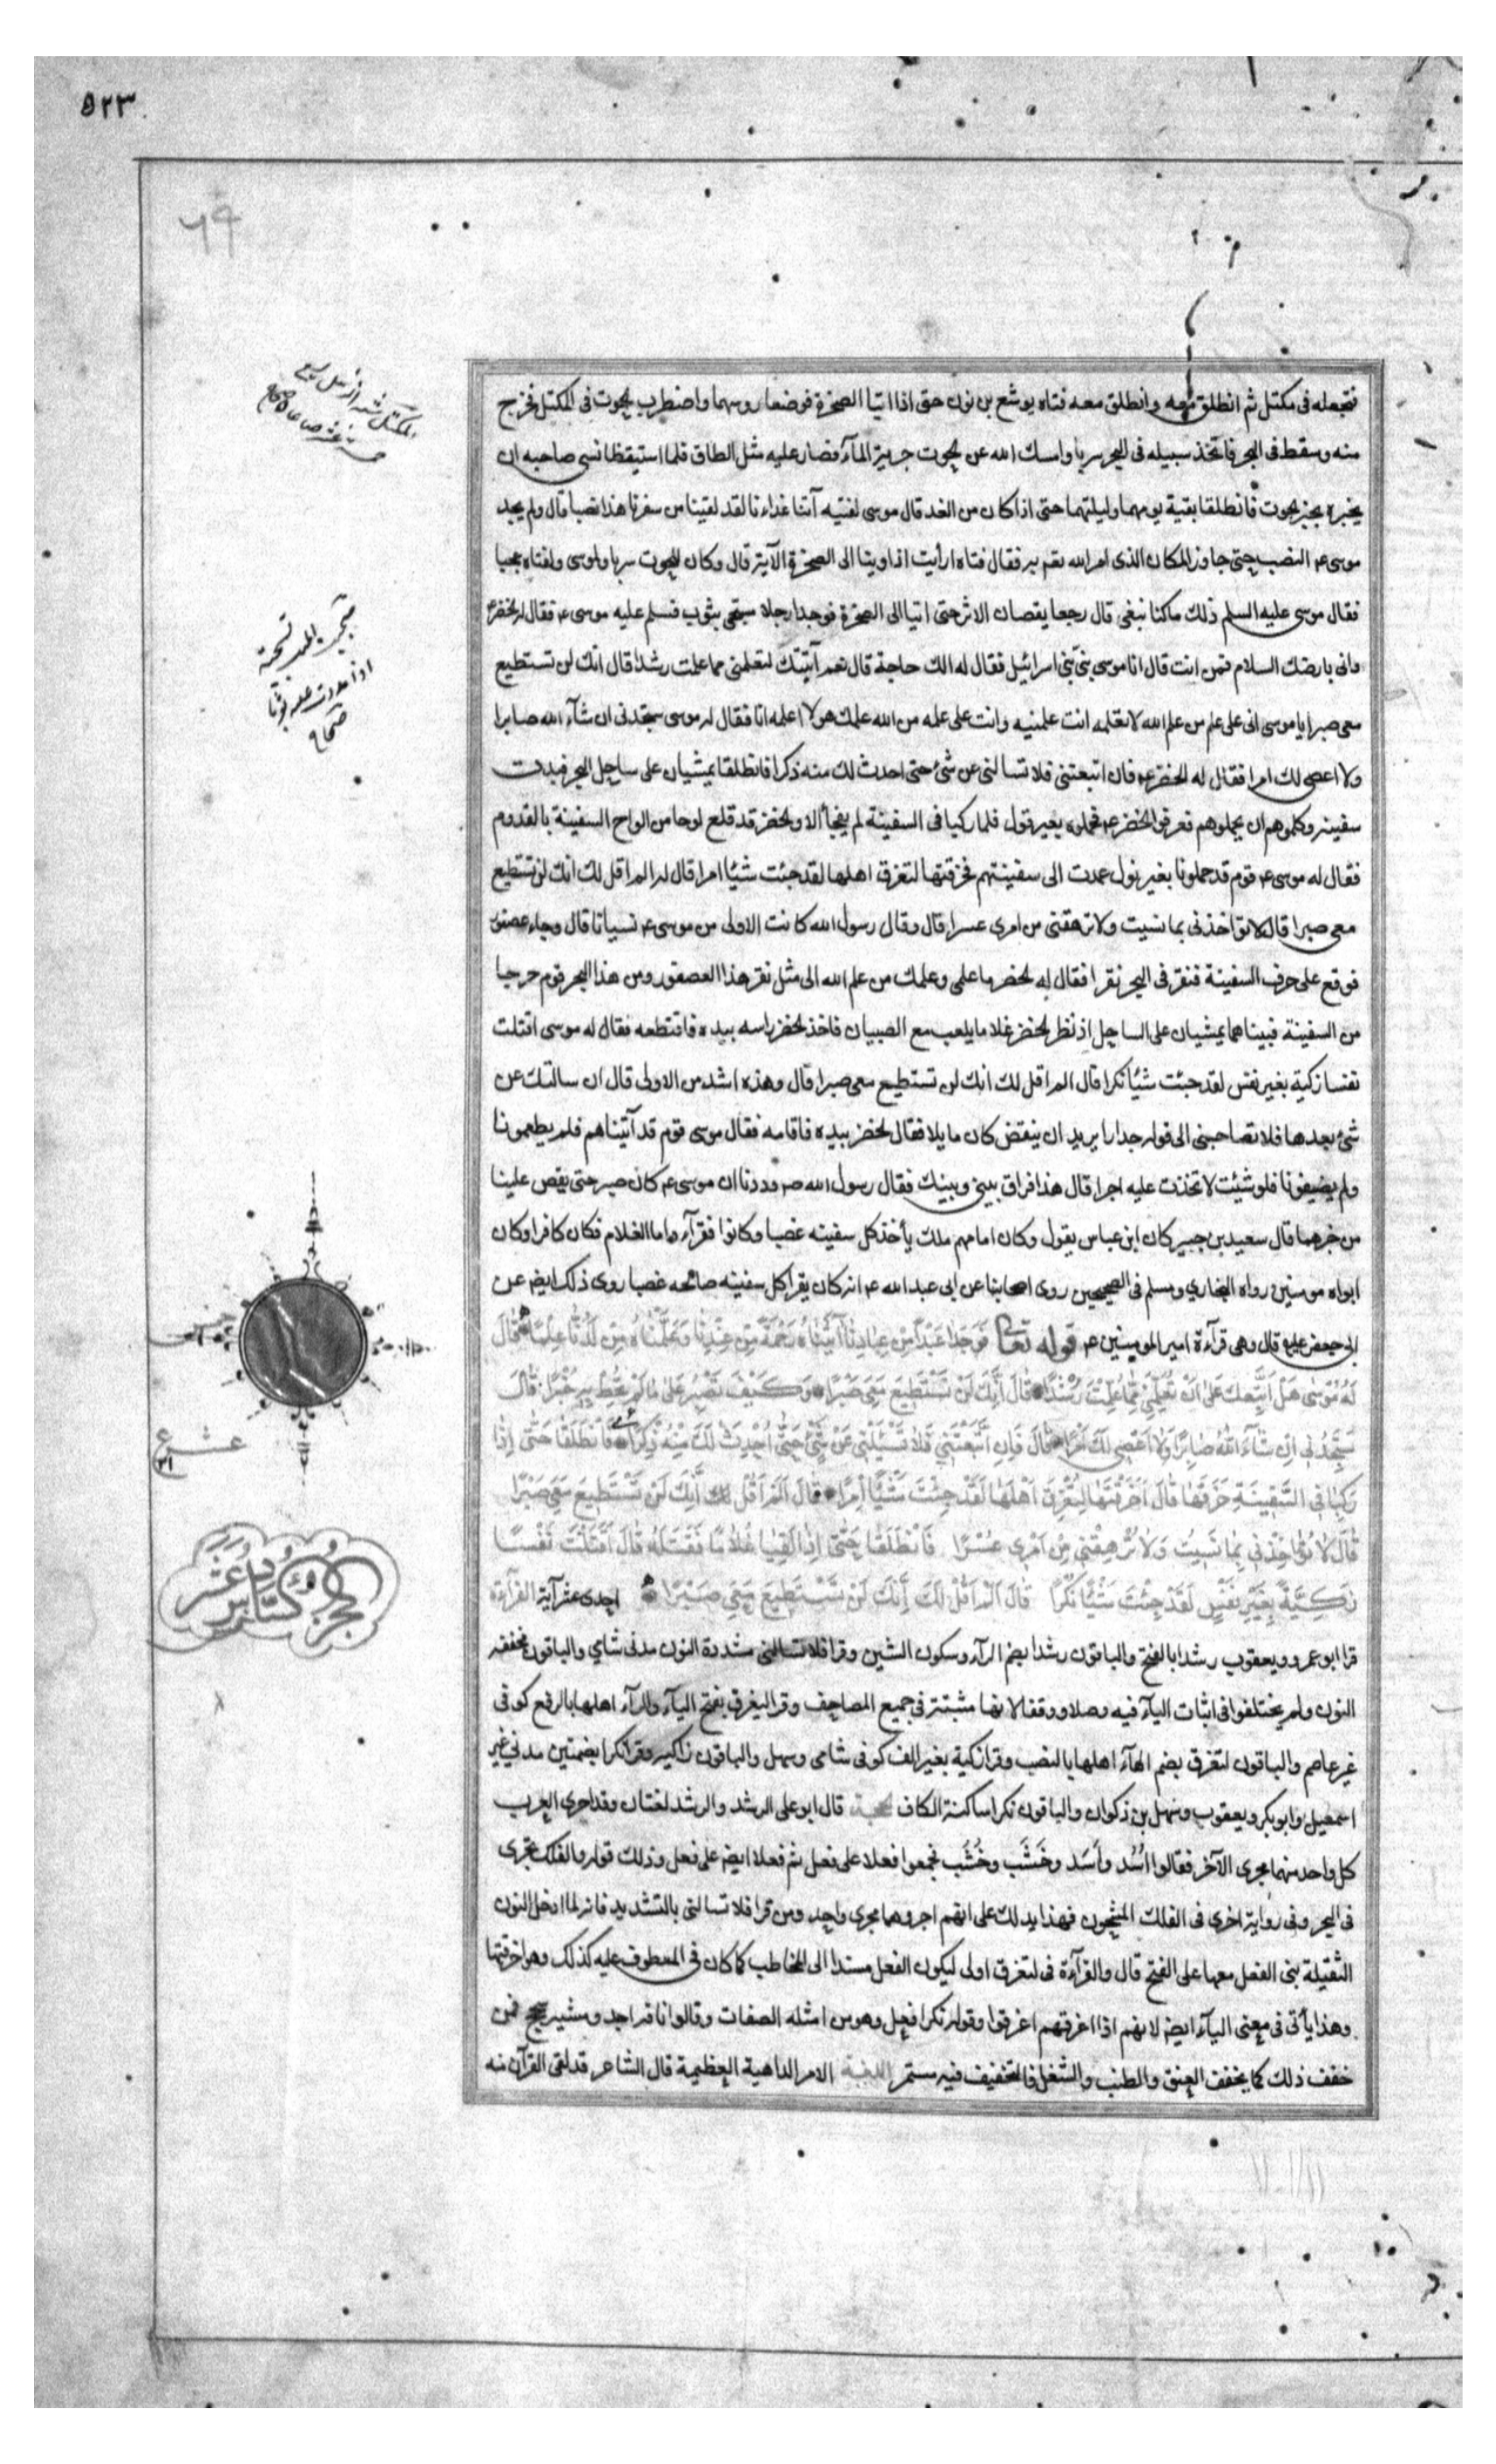 ٥٢٣
٦٩
فتجعله فى مكتل ثم انطلق معه وانطلق معه فتاه يوشع بن نون حتى اذا اتيا الصخرة فوضعا روسهما واضطرب الحوت فى المكتل فخرج
منه وسقط فى البحر فاتخذ سبيله فى البحر سربا وامسك الله عن الحوت جرية المآء فصار عليه مثل الطاق فلما استيقظا نسى صاحبه ان
يخبره بخبر الحوت فانطلقا بقية يومهما وليلتهما حتى اذا كان من الغد قال موسى لفتيه آتنا غداءنا لقد لقينا من سفرنا هذا نصبا قال ولم يجد
موسى ع النصب حتى جاوز المكان الذى امر الله تع به فقال فتاه ارأيت اذ اوينا الى الصخرة الآية قال وكان للحوت سربا ولموسى ولفتاه عجبا
فقال موسى عليه السلم ذلك ما كنا نبغى قال رجعا يقصان الاثر حتى اتيا الى الصخرة فوجدا رجلا مسجى بثوب فسلم عليه موسى ع فقال له الخضر ع
وانى بارضك السلام فمن انت قال انا موسى بنى بنى اسرائيل فقال له الك حاجة قال نعم آتيتك لتعلمنى مما علمت رشدا قال انك لن تستطيع
معى صبرا يا موسى انى على علم من علم الله لا تعلمه انت علمنيه وانت على علمه من الله علمك هو لا اعلمه انا فقال له موسى ستجدنى ان شآء الله صابرا
ولا اعصى لك امرا فقال له الخضر ع فان اتبعتنى فلا تسالنى عن شئ حتى احدث لك منه ذكرا فانطلقا يمشيان على ساحل البحر فبدت
سفينة وكلموهم ان يحملوهم فعرفوا الخضر ع فحملوه بغير نول فلما ركبا فى السفينة لم يفجأ الا والخضر قد قلع لوحا من الواح السفينة بالقدوم
فقال له موسى ع قوم قد حملونا بغير نول عمدت الى سفينتهم فخرقتها لتغرق اهلها لقد جئت شيئا امرا قال له الم اقل لك انك لن تستطيع
معى صبرا قال لا تؤاخذنى بما نسيت ولا ترهقنى من امرى عسرا قال وقال رسول الله كانت الاولى من موسى ع نسيانا قال وجاء عصفور
فوقع على حرف السفينة فنقر فى البحر نقرا فقال له الخضر ما علمى وعلمك من علم الله الى مثل نقر هذا العصفور ومن هذا البحر قوم خرجا
من السفينة فبينا هما يمشيان على الساحل اذ نظر الخضر غلاما يلعب مع الصبيان فاخذ الخضر راسه بيده فاقتطعه فقال له موسى اقتلت
نفسا زكية بغير نفس لقد جئت شيئا نكرا قال الم اقل لك انك لن تستطيع معى صبرا قال وهذه اشد من الاولى قال ان سالتك عن
شئ بعدها فلا تصاحبنى الى قوله جدارا يريد ان ينقض كان مايلا فقال الخضر بيده فاقامه فقال موسى قوم قد آتيناهم فلم يطعمونا
ولم يضيفونا فلو شيئت لاتخذت عليه اجرا قال هذا فراق بينى وبينك فقال رسول الله ص وددنا ان موسى ع كان صبر حتى يقص علينا
من خبرهما قال سعيد بن جبير كان ابن عباس يقول وكان امامهم ملك يأخذ كل سفينه غصبا وكانوا فقرآء واما الغلام فكان كافرا وكان
ابواه مومنين رواه البخاري ومسلم فى الصحيحين روى اصحابنا عن ابى عبد الله ع انه كان يقرا كل سفينه صالحه غصبا روى ذلك ايضا عن
ابى جعفر عليه قال وهى قرآءة امير المومنين ع قوله تعالى فَوَجَدَا عَبْدًا مِّنْ عِبَادِنَا آتَيْنَاهُ رَحْمَةً مِّنْ عِنْدِنَا وَعَلَّمْنَاهُ مِنْ لَدُنَّا عِلْمًا قَالَ
لَهُ مُوسَى هَلْ اَتَّبِعُكَ عَلَى اَنْ تُعَلِّمَنِ مِمَّا عُلِّمْتَ رُشْدًا قَالَ اِنَّكَ لَنْ تَسْتَطِيعَ مَعِيَ صَبْرًا وَكَيْفَ تَصْبِرُ عَلَى مَا لَمْ تُحِطْ بِهِ خُبْرًا قَالَ
سَتَجِدُنِى اِنْ شَآءَ اللّٰهُ صَابِرًا وَلَا اَعْصِى لَكَ اَمْرًا قَالَ فَاِنِ اتَّبَعْتَنِى فَلَا تَسْئَلْنِى عَنْ شَىْءٍ حَتَّى اُحْدِثَ لَكَ مِنْهُ ذِكْرًا فَانْطَلَقَا حَتَّى اِذَا
رَكِبَا فِى السَّفِينَةِ خَرَقَهَا قَالَ اَخَرَقْتَهَا لِتُغْرِقَ اَهْلَهَا لَقَدْ جِئْتَ شَيْئًا اِمْرًا قَالَ اَلَمْ اَقُلْ لَكَ اِنَّكَ لَنْ تَسْتَطِيعَ مَعِىَ صَبْرًا
قَالَ لَا تُؤَاخِذْنِى بِمَا نَسِيتُ وَلَا تُرْهِقْنِى مِنْ اَمْرِى عُسْرًا فَانْطَلَقَا حَتَّى اِذَا لَقِيَا غُلَامًا فَقَتَلَهُ قَالَ اَقَتَلْتَ نَفْسًا
زَكِيَّةً بِغَيْرِ نَفْسٍ لَقَدْ جِئْتَ شَيْئًا نُكْرًا قَالَ اَلَمْ اَقُلْ لَكَ اِنَّكَ لَنْ تَسْتَطِيعَ مَعِىَ صَبْرًا احدى عشر آية القرآءة
قرا ابو عمرو ويعقوب رشدا بالفتح والباقون رشدا بضم الرآء وسكون الشين وقرا فلا تسالنى مشددة النون مدنى شاي والباقون مخففه
النون ولم يختلفوا فى اثبات اليآء فيه وصلا ووقفا لانها مثبتة فى جميع المصاحف وقرا ليغرق بفتح اليآء والرآء اهلها بالرفع كوفى
غير عاصم والباقون لتغرق بضم الهآء اهلها بالنصب وقرا زكية بغير الف كوفى شامى وسهل والباقون زاكية وقرا نكرا بضمتين مدنى غير
اسمعيل وابو بكر ويعقوب وسهل بن ذكوان والباقون نكرا ساكنة الكاف الحجة قال ابو على الرشد والرشد لغتان وقد اجرى العرب
كل واحد منهما مجرى الآخر فقالوا اُسُد وأَسَد وخَشَب وخُشُب فجمعوا فعلا على فعل ثم فعلا ايضا على فعل وذلك قوله والفلك تجرى
فى البحر وفى رواية اخرى فى الفلك المشحون فهذا يدلك على انهم اجروهما مجرى واحد ومن قرا فلا تسالنى بالتشديد فانه لما ادخل النون
الثقيلة بنى الفعل معها على الفتح قال والقرآءة فى لتغرق اولى ليكون الفعل مسندا الى المخاطب كما كان فى المعطوف عليه كذلك وهو اخرقتها
وهذا يأتى فى معنى اليآء ايضا لانهم اذا اغرقتهم اغرقوا وقوله نكرا فعل وهو من امثله الصفات وقالوا ناقة اجد ومشيه سجح فمن
خفف ذلك كما يخفف العنق والطنب والشغل فالتخفيف فيه مستمر اللغة الامر الداهية العظيمة قال الشاعر قد لقى القرآن منه
صحاح
عشر ع